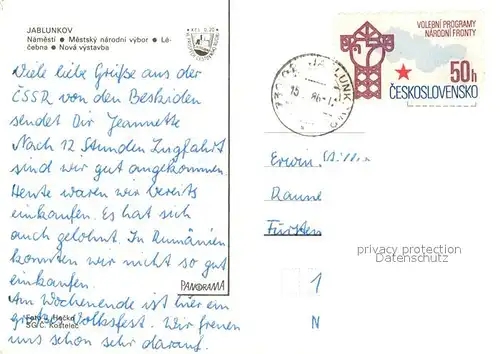 JABLUNKOV
Náměstí ● Městský národní výbor ● Lé-
čebna ● Nová výstavba
Viele liebe Grüße aus der
ČSSR von den Beskiden
sendet Dir Jeannette
Nach 12 Stunden Zugfahrt
sind wir gut angekommen.
Heute waren wir bereits
einkaufen. Es hat sich
auch gelohnt. In Rumänien
konnten wir nicht so gut
einkaufen.
PANORAMA
Am Wochenende ist hier ein
großes Volksfest. Wir freuen
uns schon sehr darauf.
SG/C. Kostelec
VOLEBNÍ PROGRAMY
NÁRODNÍ FRONTY
50h
ČESKOSLOVENSKO
Erwin
Fürsten
privacy protection
Datenschutz
1
N